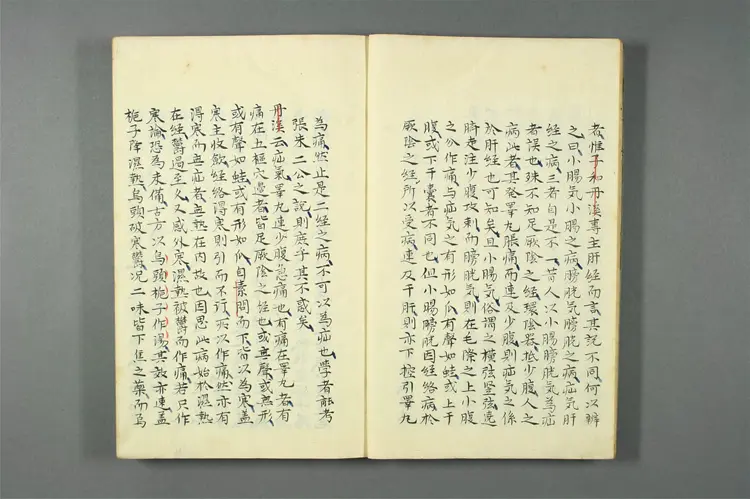 者惟子和丹溪專主肝経而言其說不同何以辨
之曰小腸気小腸之病膀胱気膀胱之病疝気肝
経之病三者自是不一昔人以小腸膀胱気為疝
者誤也殊不知足厥陰之経環陰器抵少腹人之
病此者其発睪丸脹痛而連及少腹則疝気之係
於肝経也可知矣且小腸気俗謂之横弦竖弦遶
臍走注少腹攻刺而膀胱気則在毛際之上小腹
之分作痛与疝気之有形如瓜有聲如蛙或上于
腹或下于囊者不同也但小腸膀胱因経絡病於
厥陰之経所以受病連及于肝則亦下控引睪丸
為痛然止是二経之病不可以為疝也學者能考
張朱二公之說則庶乎其不惑矣
丹溪云疝気睪丸連少腹急痛也有痛在睪丸者有
痛在五樞穴邊者皆足厥陰之経也或無形無聲
或有聲如蛙或有形如瓜自素問而下皆以為寒盖
寒主收歛経絡得寒則引而不行所以作痛然亦有
得寒而無疝者無熱在内故也因思此病始於濕熱
在経鬱遏至久又感外寒濕熱被鬱而作痛若只作
寒論恐為未備古方以烏頭栀子作湯其效亦速盖
栀子降濕熱烏頭破寒鬱况二味皆下焦之藥而烏